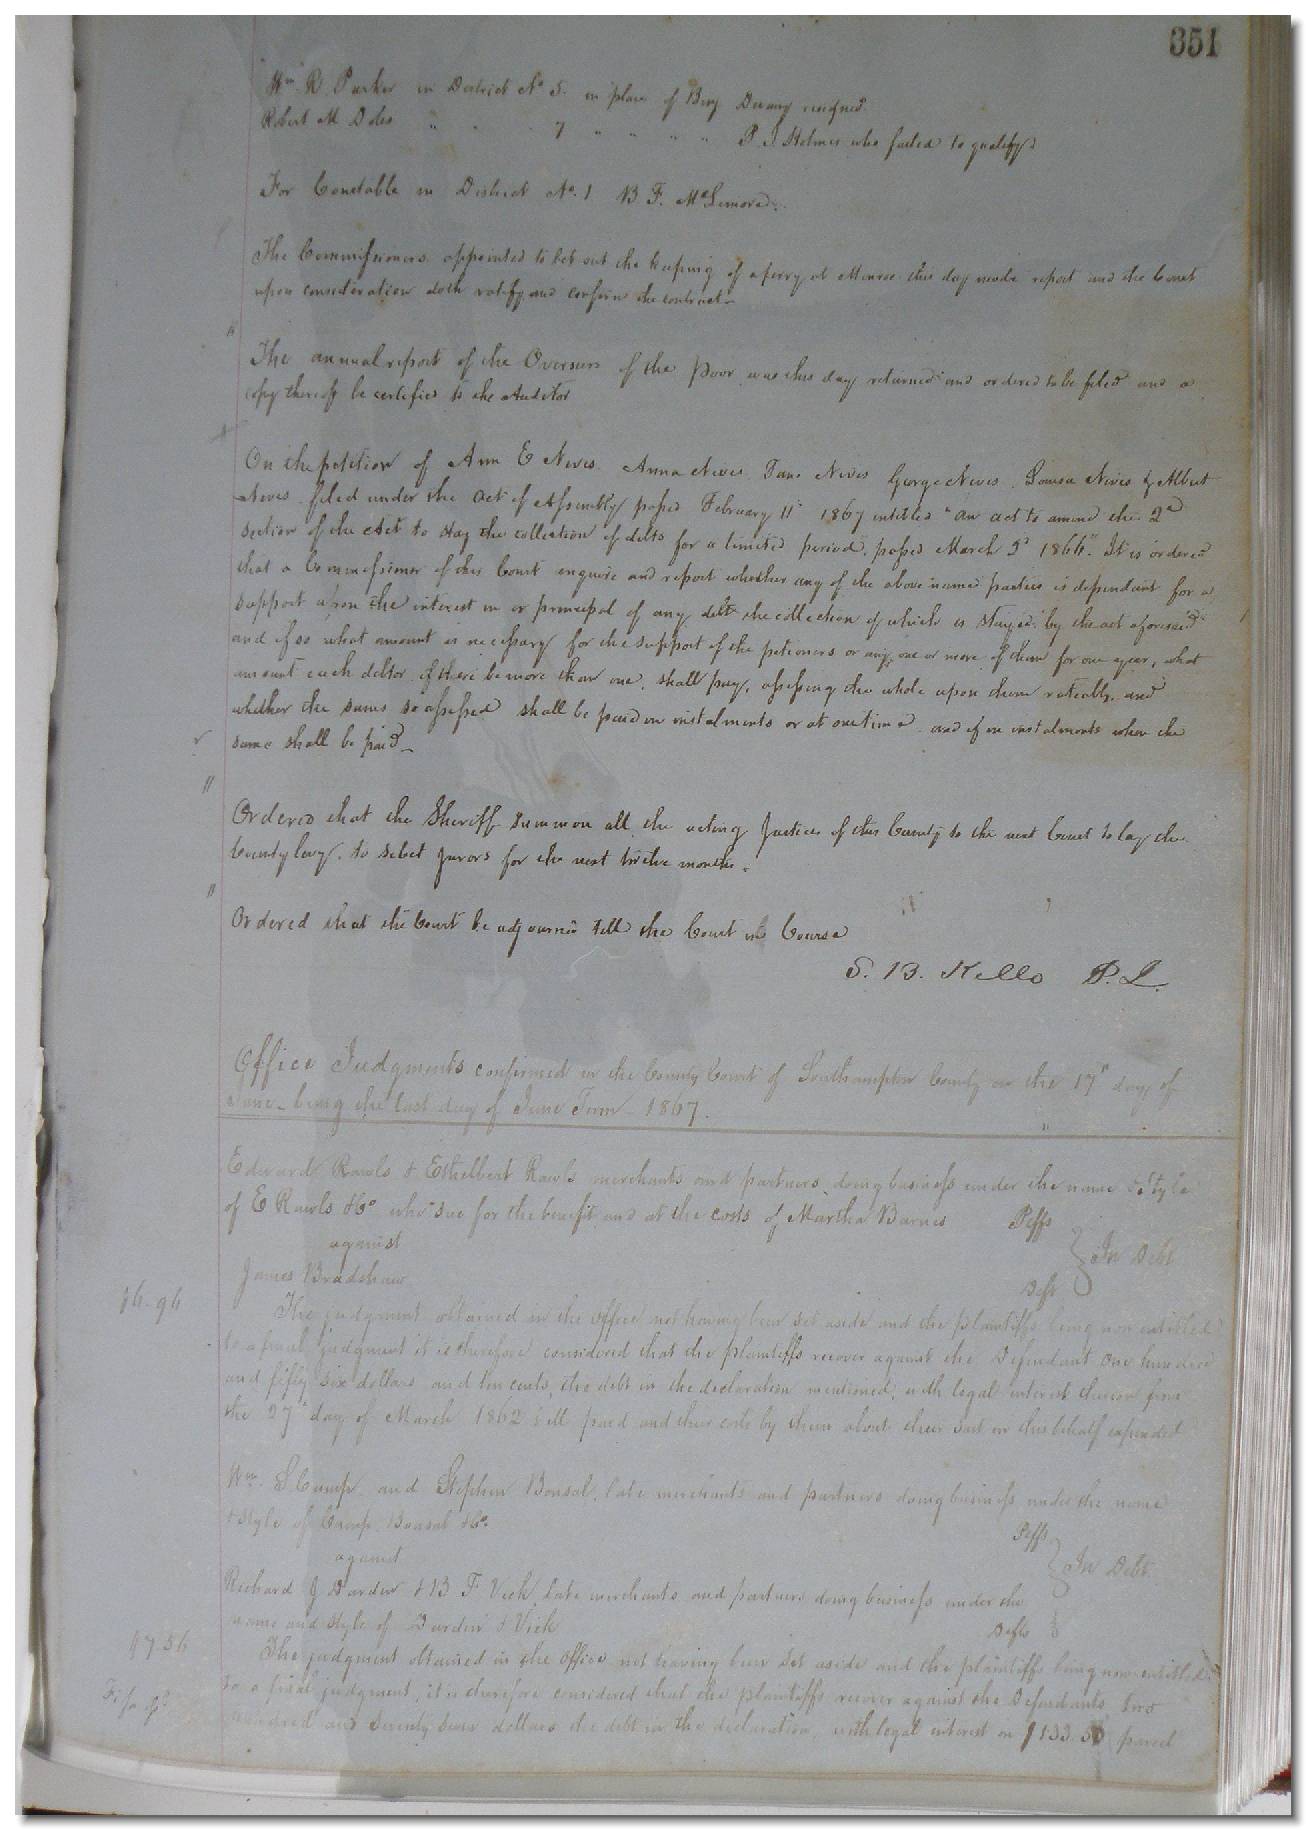 351
Wm R. Parker in District No 5. in place of Benj Devany resigned
Robert M Doles " " " 7 " " " " P. J. Holmes who failed to qualify
For Constable in District No. 1 B. F. McLemore.
The Commissioners appointed to let out the keeping of a ferry at Monroe this day made report and the Court
upon consideration doth ratify and confirm the contract
"
The annual report of the Overseers of the Poor was this day returned and ordered to be filed and a
copy thereof be certified to the Auditor
On the petition of Ann E Neves. Anna Neves Jane Neves George Neves. Louisa Neves & Albert
Neves filed under the act of Assembly passed February 11th 1867 entitled "an act to amend the 2d
section of the act to stay the collection of debts for a limited period, passed March 2d 1866". It is ordered
that a Commissioner of this Court enquire and report whether any of the above named parties is dependant for a
support upon the interest in or principal of any debt the collection of which is stayed by the act aforesaid
and if so what amount is necessary for the support of the petioners or any one or more of them for one year, what
amount each debtor if there be more than one, shall pay, assessing the whole upon them rateably, and
whether the sums so assessed shall be paid in instalments or at one time and if in instalments when the
same shall be paid
"
Ordered that the Sheriff summon all the acting Justices of this County to the next Court to lay the
County levy, to select jurors for the next twelve months.
"
Ordered that the Court be adjourned till the Court in Course
S. B. Kello P. J.
Office Judgments confirmed in the County Court of Southampton County on the 17th day of
June being the last day of June Term 1867.
Edward Rawls & Ethelbert Rawls merchants and partners doing business under the name & style
of E Rawls & Co who sue for the benefit and at the costs of Martha Barnes Plffs
against
In Debt
James Bradshaw Deft
16.96
The judgment obtained in the office not having been set aside and the plaintiffs being now entitled
to a final judgment it is therefore considered that the plaintiffs recover against the Defendant One hundred
and fifty six dollars and ten cents, the debt in the declaration mentioned, with legal interest thereon from
the 27th day of March 1862 till paid and their costs by them about their suit in this behalf expended
Wm. S Camp and Stephen Bonsal, late merchants and partners doing business under the name
& style of Camp, Bonsal & Co. Plffs
against
In Debt
Richard J Darden & B F Vick, late merchants and partners doing business under the
name and style of Darden & Vick Defts
17.56
The judgment obtained in the office not having been set aside and the plaintiffs being now entitled
to a final judgment, it is therefore considered that the plaintiffs recover against the Defendants two
hundred and seventy seven dollars the debt in the declaration, with legal interest on $133.50 parcel